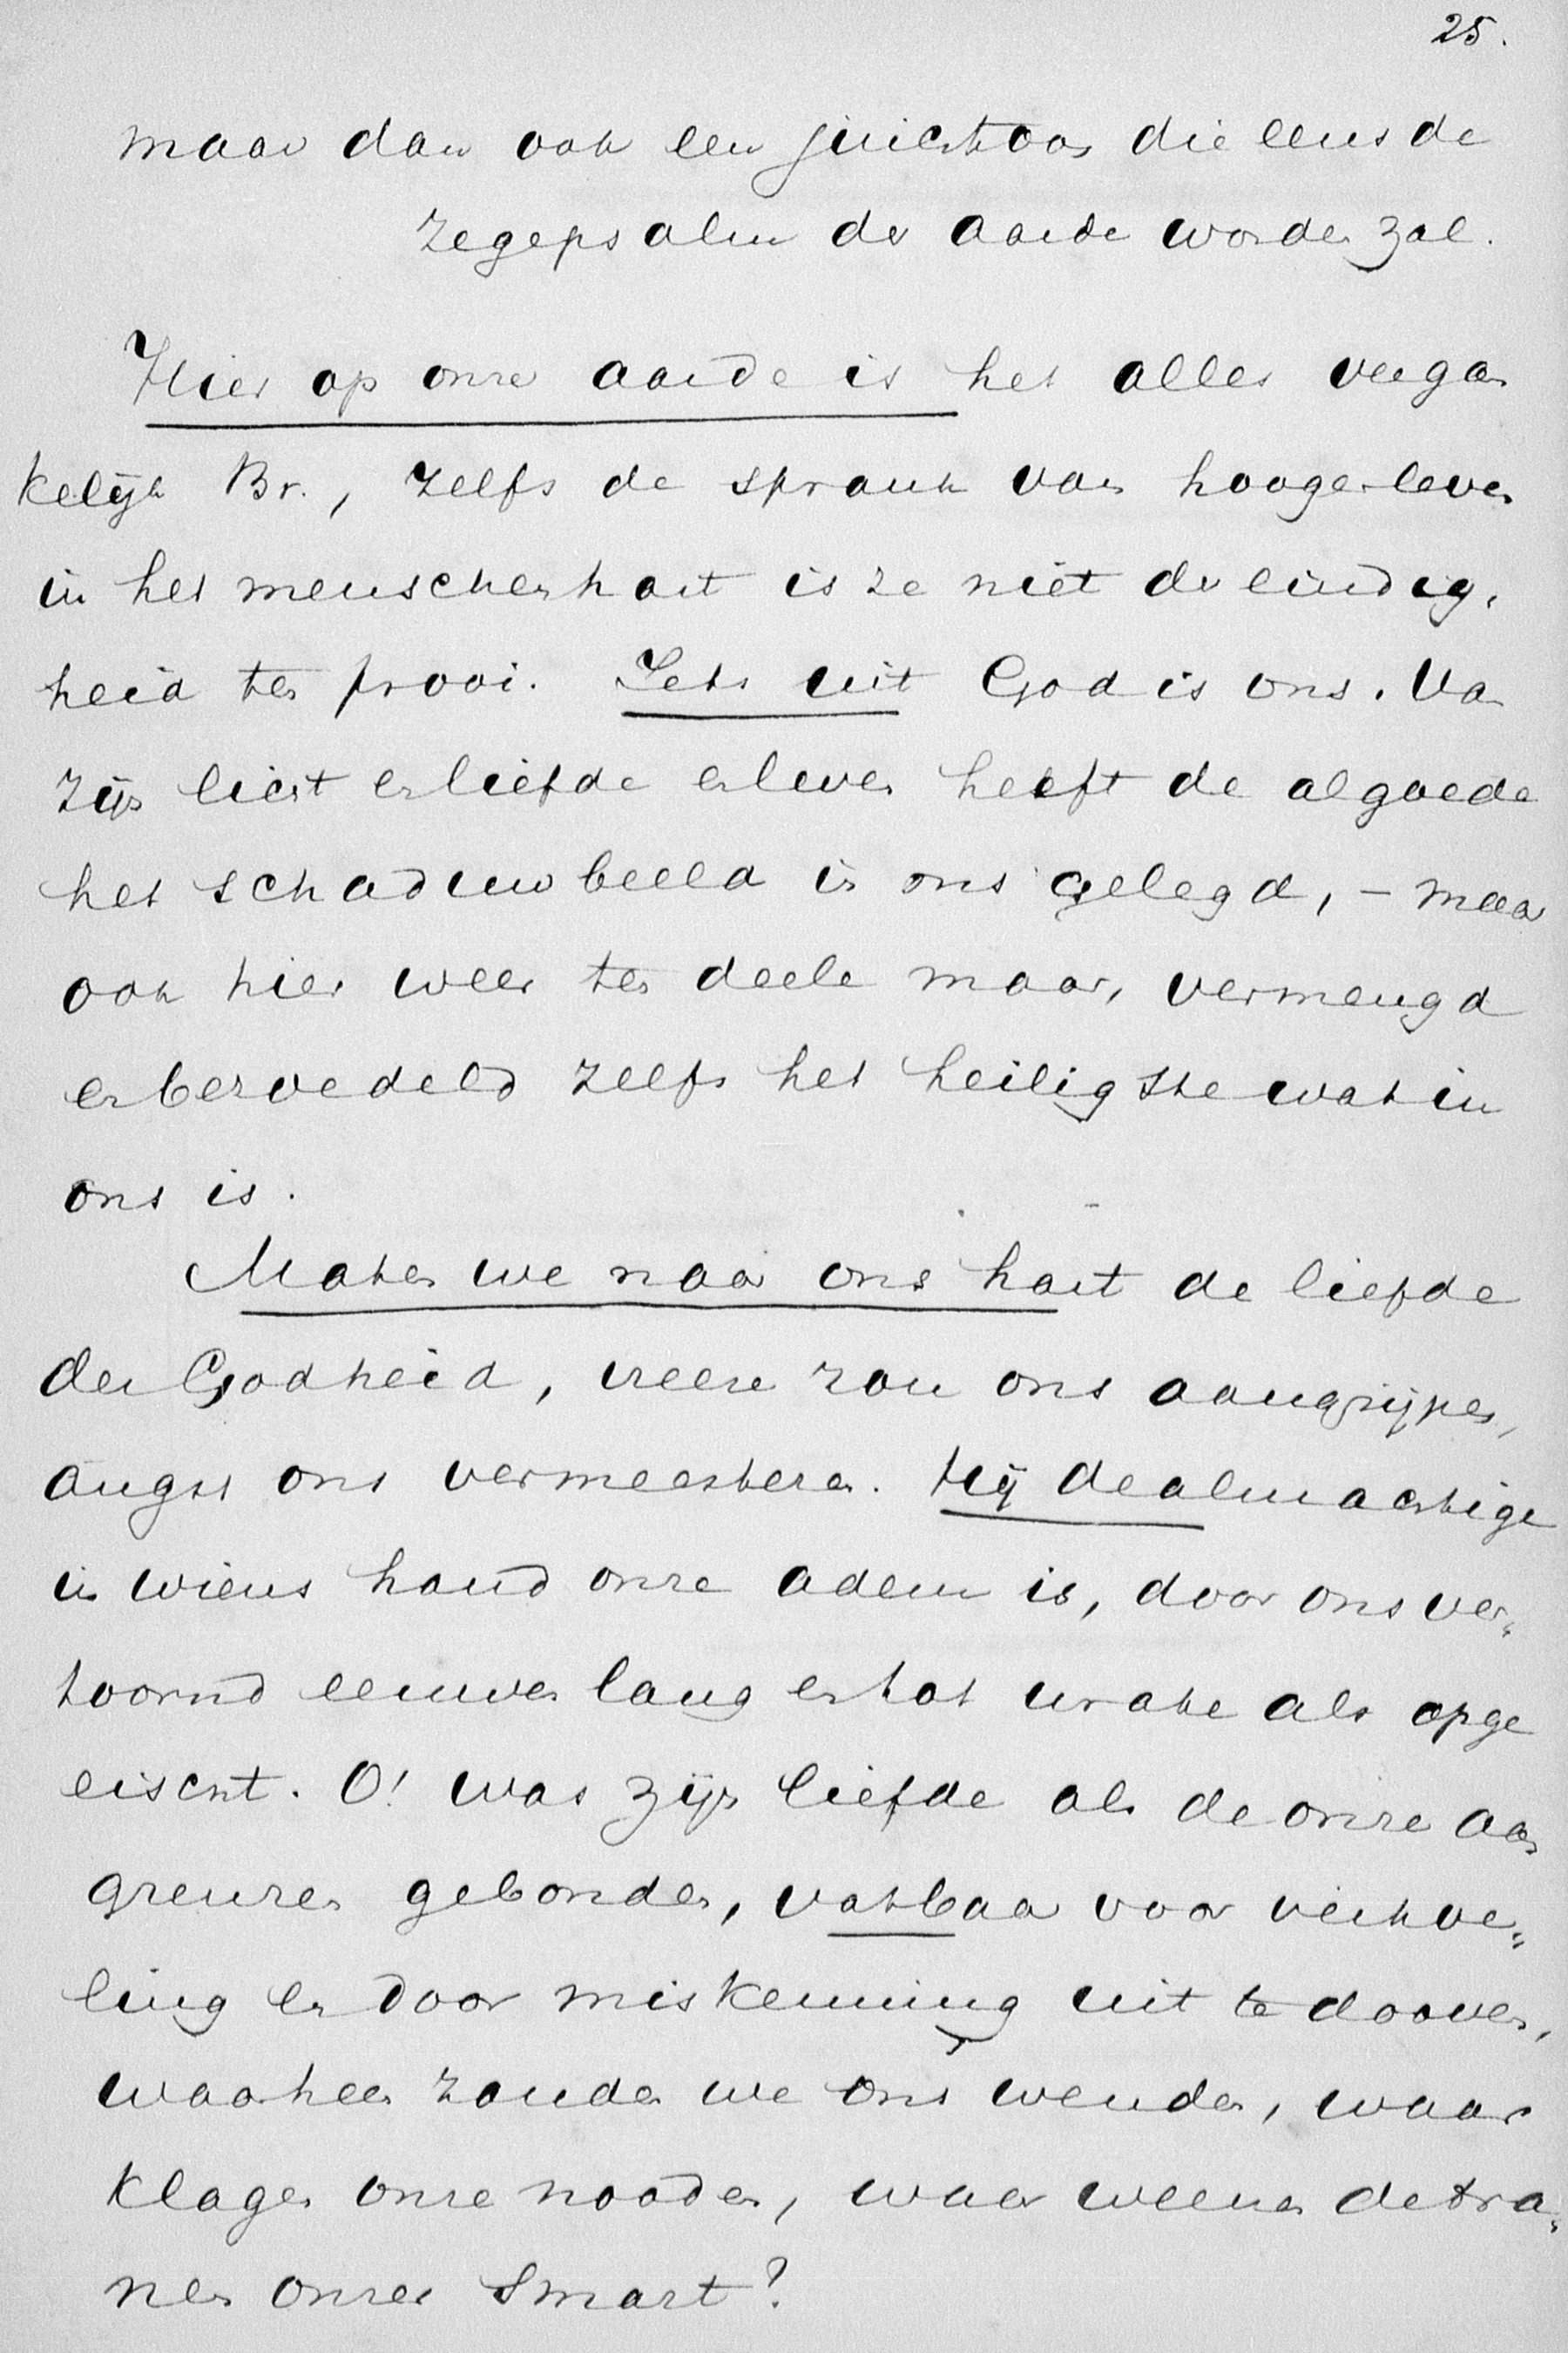 25.
maar dan ook een juichtoon die eens de
zegepsalm der aarde worden zal.
Hier op onze aarde is het alles vergan
kelijk Br., zelfs de sprank van hooger leven
in het menschenhart is ze niet der eindig,
heid ten prooi. Iets uit God is ons. Van
zijn licht en liefde en leven heeft de algoede
het schaduwbeeld in ons gelegd, – maar
ook hier weer ten deele maar, vermengd
en bezoedeld zelfs het heiligste wat in
ons is.
Maten we naar ons hart de liefde
der Godheid, vreeze zou ons aangrijpen,
angst ons vermeesteren. Hij de almachtige
in wiens hand onze adem is, door ons ver„
toornd eeuwen lang en tot wrake als opge
eischt. O! was zijn liefde als de onze aan
grenzen gebonden, vatbaar voor verkoe„
ling en door miskenning uit te dooven,
waarheen zouden we ons wenden, waar
klagen onze nooden, waar weenen de tra„
nen onzer smart?